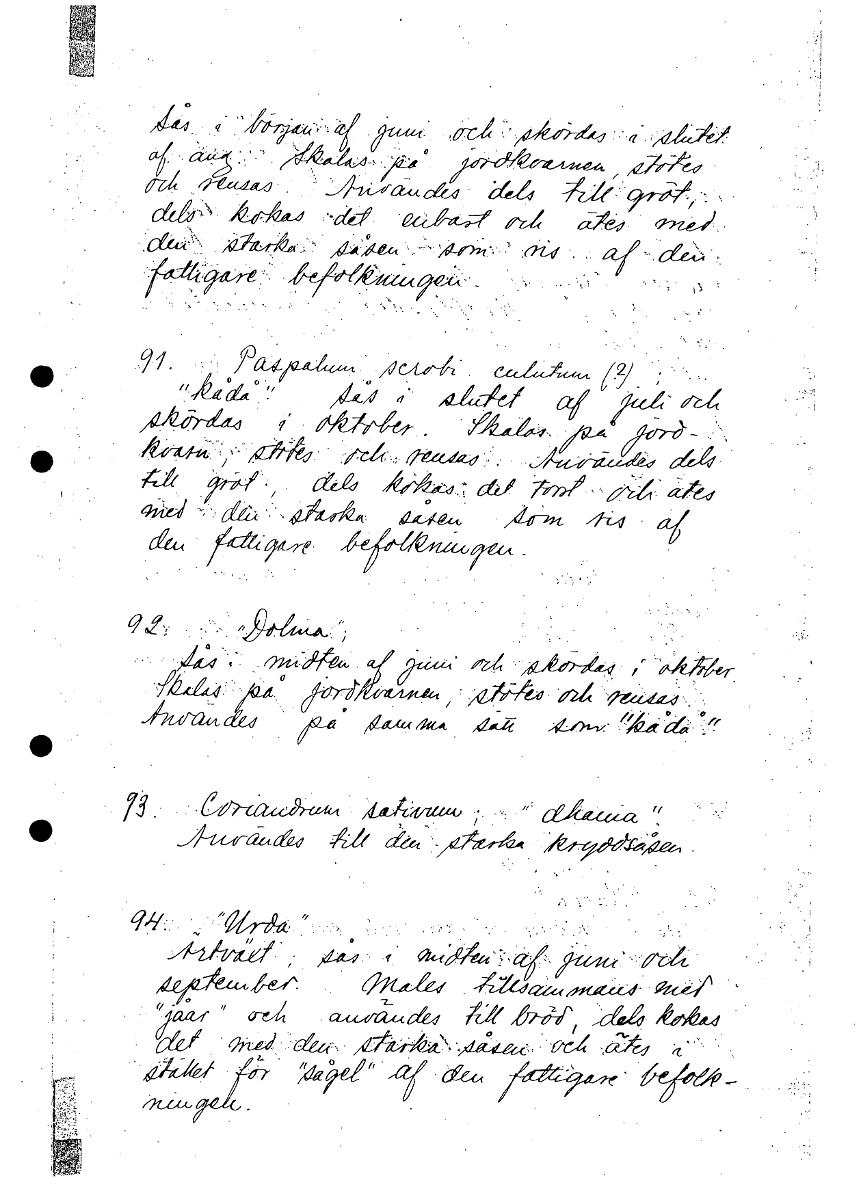 Sås i början af juni och skördas i slutet
af aug. Skalas på jordkvarnen, stötes
och rensas. Användes dels till gröt,
dels kokas det enbart och ätes med
den starka såsen som ris af den
fattigare befolkningen.
91. Paspalum scrobi culutum (?)
"kådå" Sås i slutet af juli och
skördas i oktober. Skalas på jord-
kvarn, stötes och rensas. Användes dels
till gröt, dels kokas det torrt och ätes
med den starka såsen som ris af
den fattigare befolkningen.
92. "Dolma",
Sås i midten af juni och skördas i oktober
Skalas på jordkvarnen, stötes och rensas.
Användes på samma sätt som "kådå".
93. Coriandrum sativum; "dhania".
Användes till den starka kryddsåsen.
94. "Urda"
Ärtväxt, sås i midten af juni och
september. Males tillsammans med
"jåår" och användes till bröd, dels kokas
det med den starka såsen och ätes i
stället för "sågel" af den fattigare befolk-
ningen.